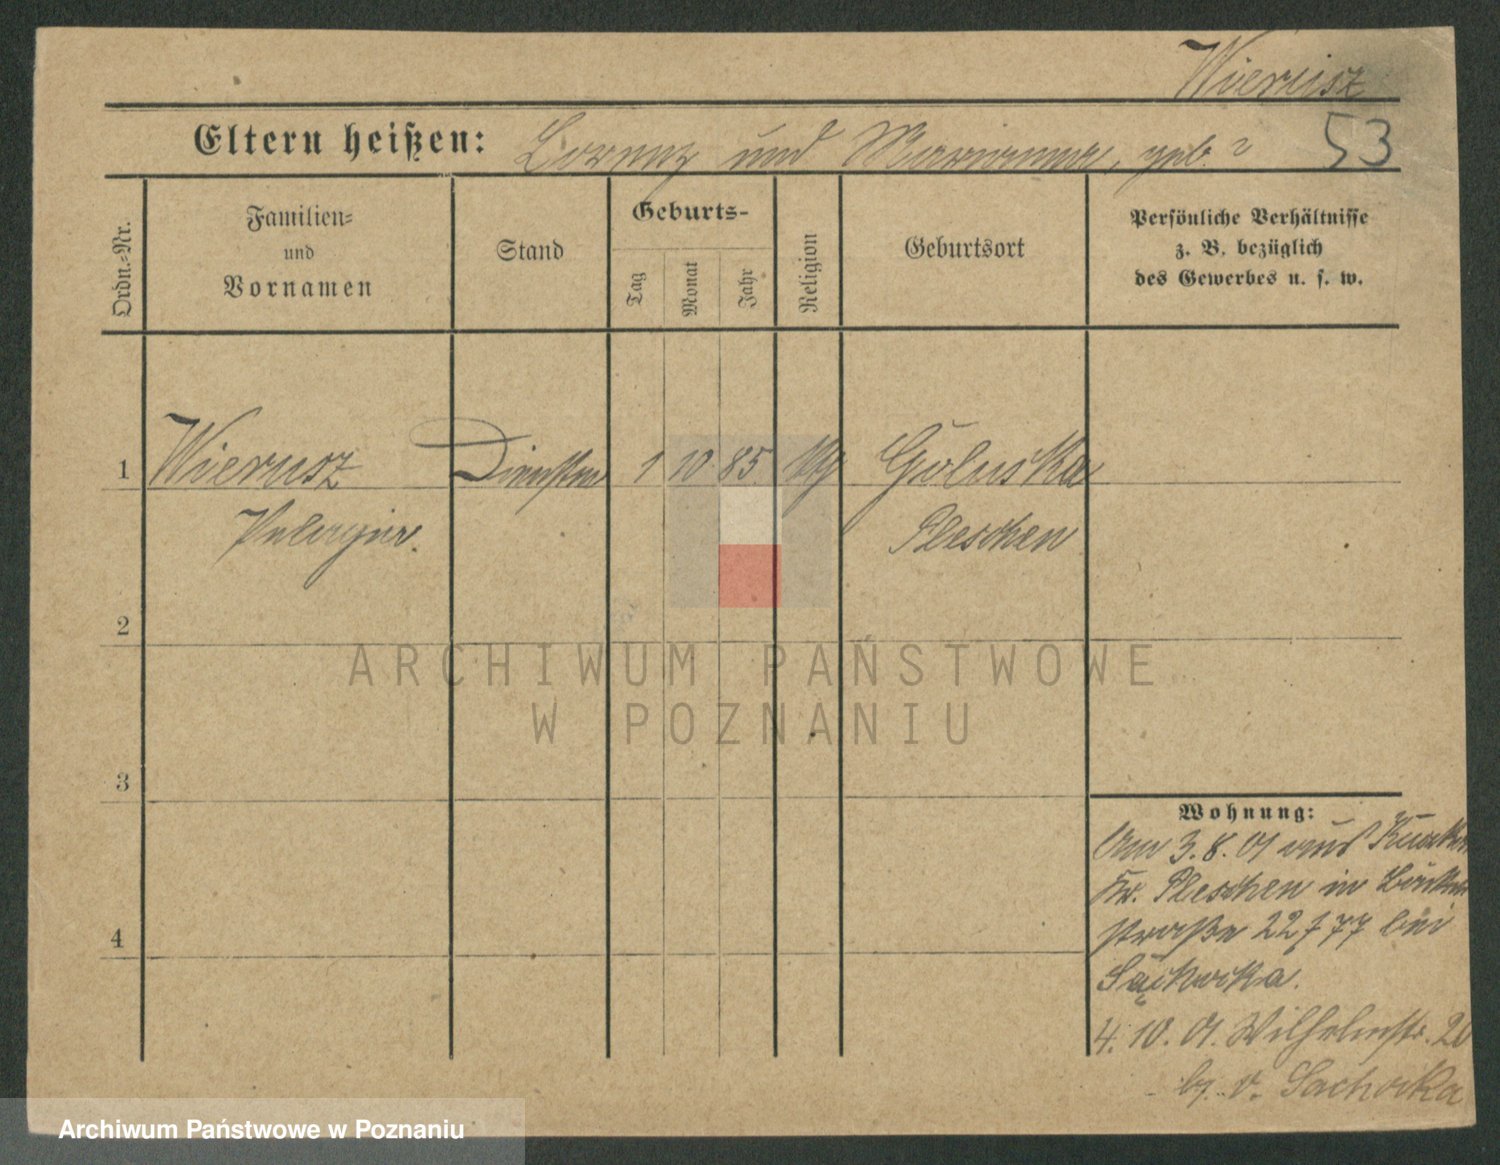 Wierusz
Eltern heißen: Lorenz und Marianna, geb. ? 53
Ordn.-Nr.
Familien-
und
Vornamen
Stand
Geburts-
Tag
Monat
Jahr
Religion
Geburtsort
Persönliche Verhältnisse
z. B. bezüglich
des Gewerbes u. s. w.
1 Wierusz 1 10 85 Goluska
Pelagia. Pleschen
2
ARCHIWUM PAŃSTWOWE
W POZNANIU
3
4
Wohnung:
Am 3.8.01 aus
Kr. Pleschen in
straße 22 f 77 bei
4.10.01. Wilhelmstr. 20
b. v.
Archiwum Państwowe w Poznaniu